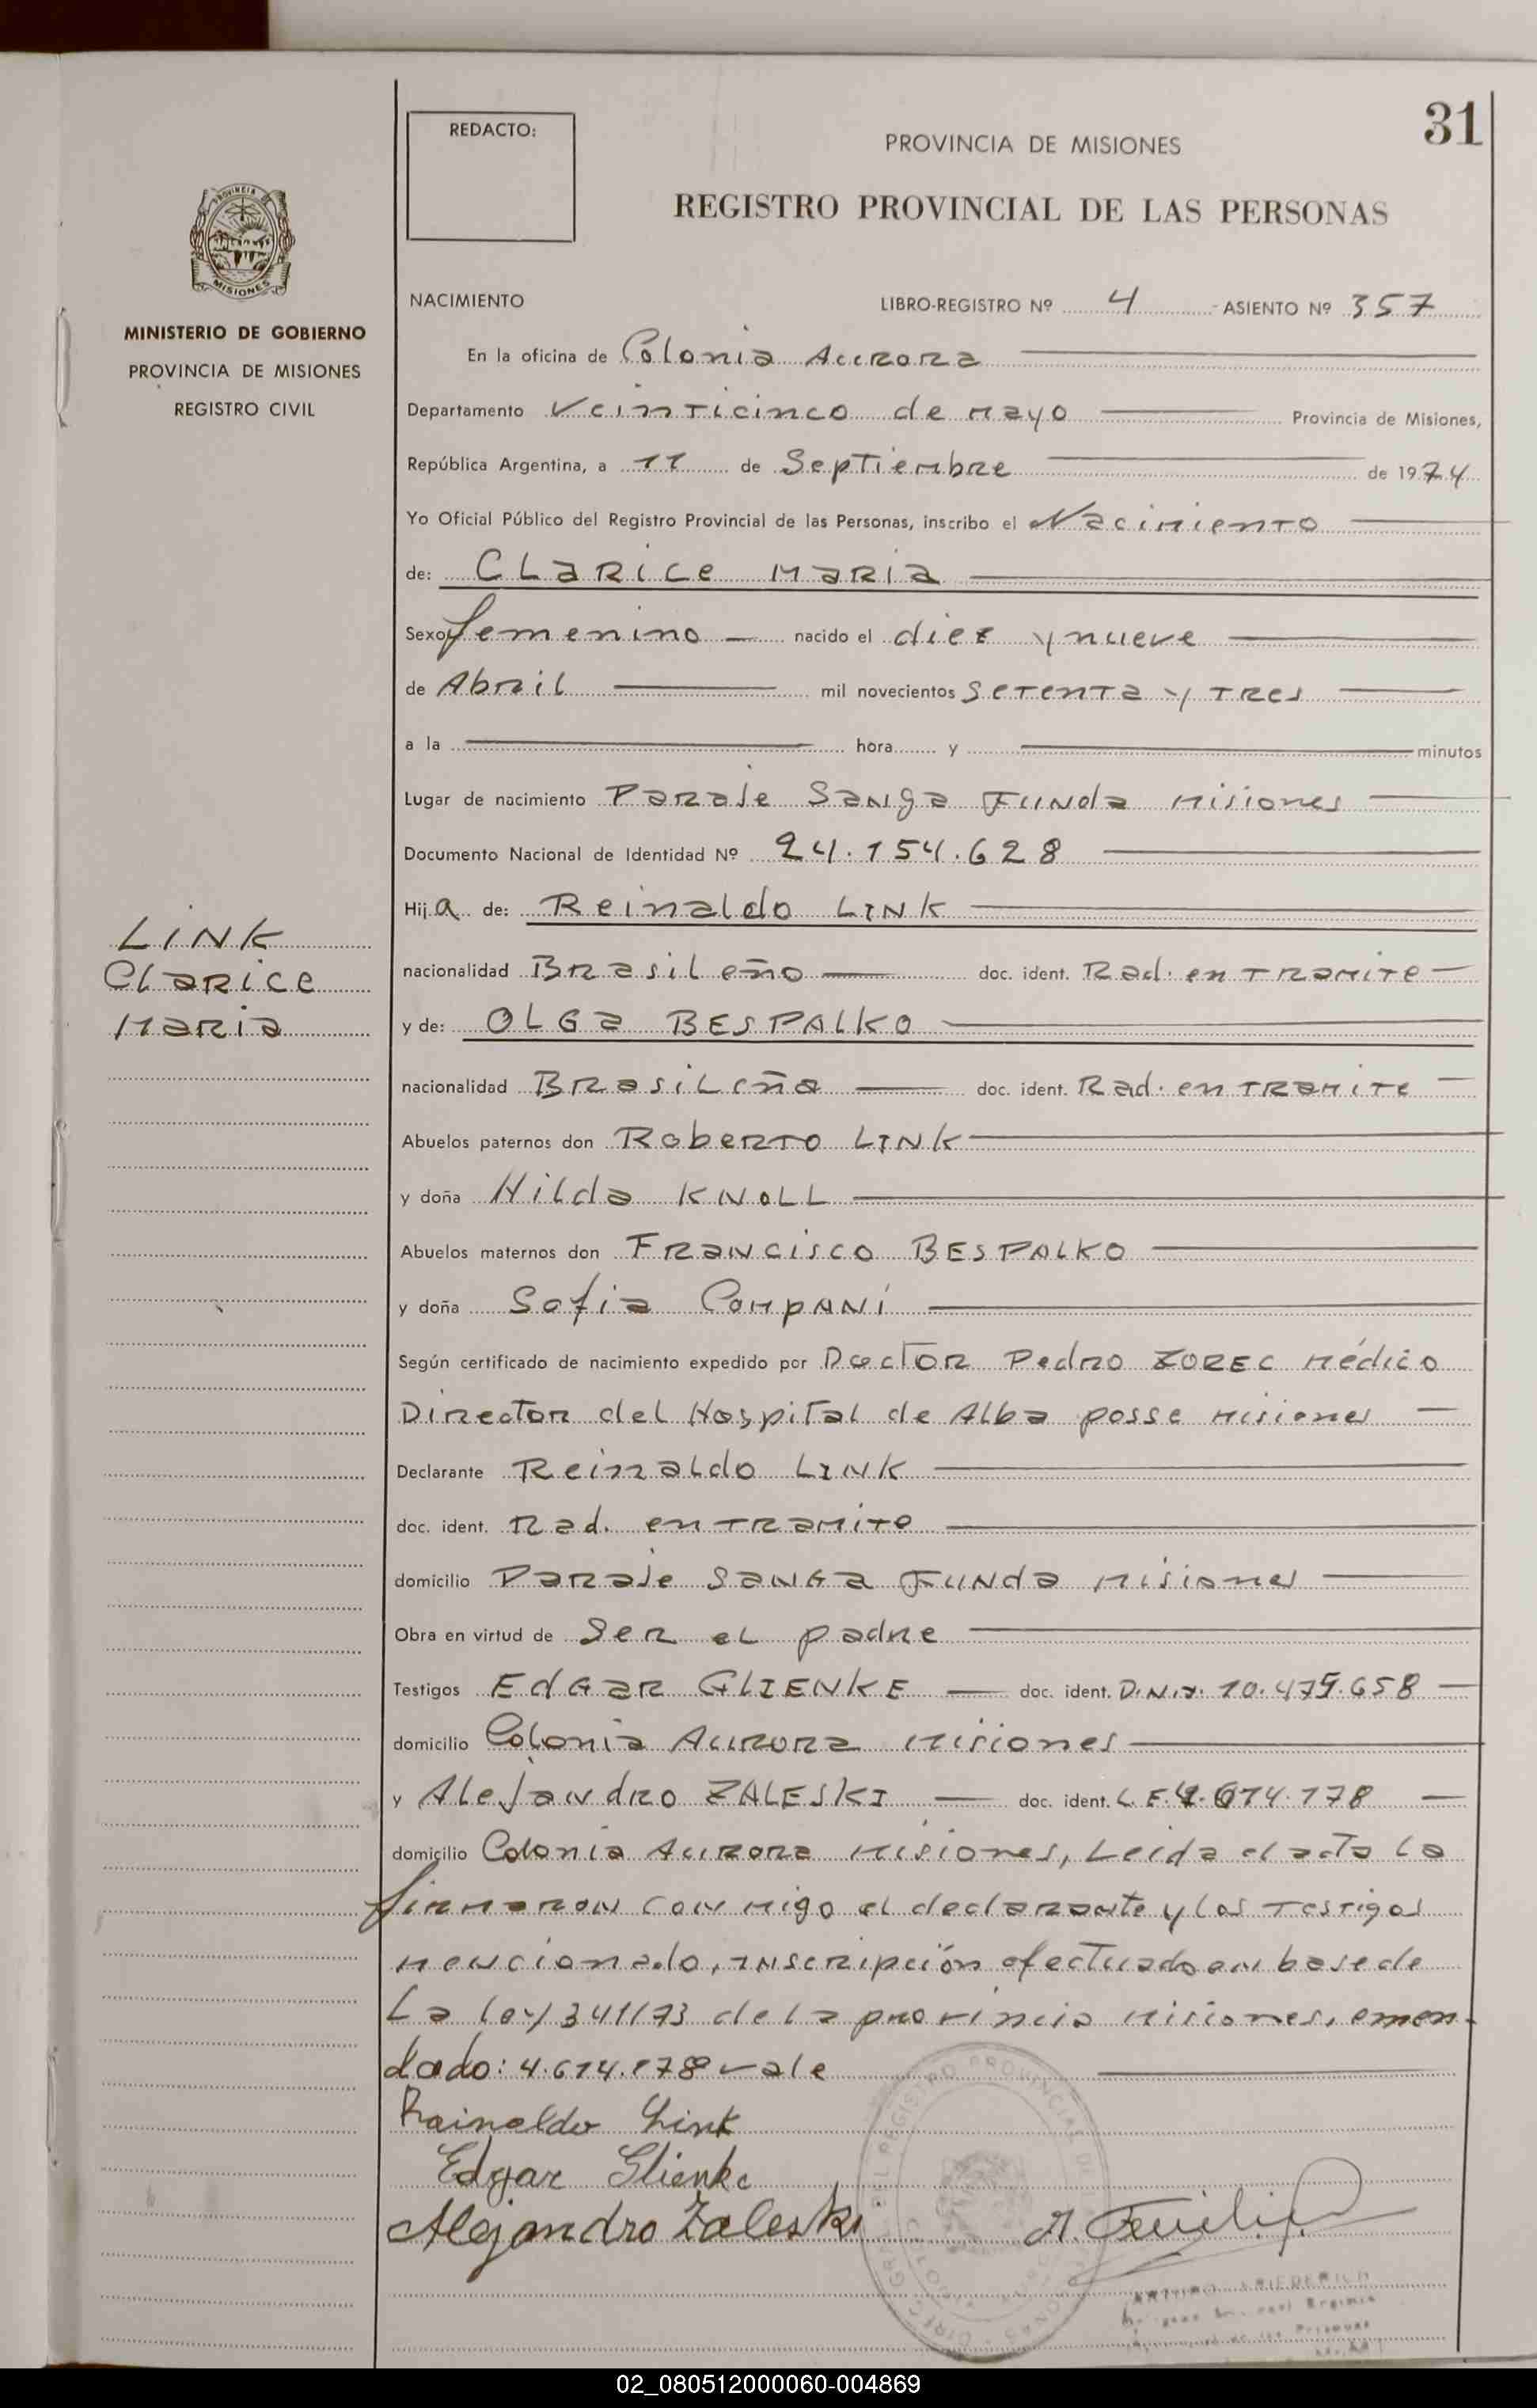 31
REDACTO:
PROVINCIA DE MISIONES
REGISTRO PROVINCIAL DE LAS PERSONAS
PROVINCIA
MISIONES
MINISTERIO DE GOBIERNO
PROVINCIA DE MISIONES
REGISTRO CIVIL
NACIMIENTO LIBRO-REGISTRO Nº 4 ASIENTO Nº 357
En la oficina de Colonia Aurora
Departamento Veinticinco de mayo Provincia de Misiones,
República Argentina, a 11 de Septiembre de 1974
Yo Oficial Público del Registro Provincial de las Personas, inscribo el Nacimiento
de: CLARICE MARIA
Sexo femenino nacido el diez y nueve
de Abril mil novecientos setenta y tres
a la hora y minutos
Lugar de nacimiento Paraje Sanga Funda Misiones
Documento Nacional de Identidad Nº 24.154.628
Hija de: Reinaldo LINK
LINK
Clarice
Maria
nacionalidad Brasileño doc. ident. Rad. en tramite
y de: OLGA BESPALKO
nacionalidad Brasileña doc. ident. Rad. en tramite
Abuelos paternos don Roberto LINK
y doña Hilda KNOLL
Abuelos maternos don Francisco BESPALKO
y doña Sofia Compani
Según certificado de nacimiento expedido por Doctor Pedro ZOREC Médico
Director del Hospital de Alba posse Misiones
Declarante Reinaldo LINK
doc. ident. Rad. en tramite
domicilio Paraje Sanga Funda Misiones
Obra en virtud de Ser el padre
Testigos EDGAR GLIENKE doc. ident. D.N.I. 10.475.658
domicilio Colonia Aurora Misiones
y Alejandro ZALESKI doc. ident. L.E. 4.614.178
domicilio Colonia Aurora Misiones, Leida el acta la
firmaron conmigo el declarante y los testigos
mencionado, inscripción efectuado en base de
La ley 341/73 de la provincia Misiones, emen-
dado: 4.614.178 vale
Rainoldo Link
Edgar Glienke
Alejandro Zaleski
ARTURO FRIEDERICH
02_080512000060-004869